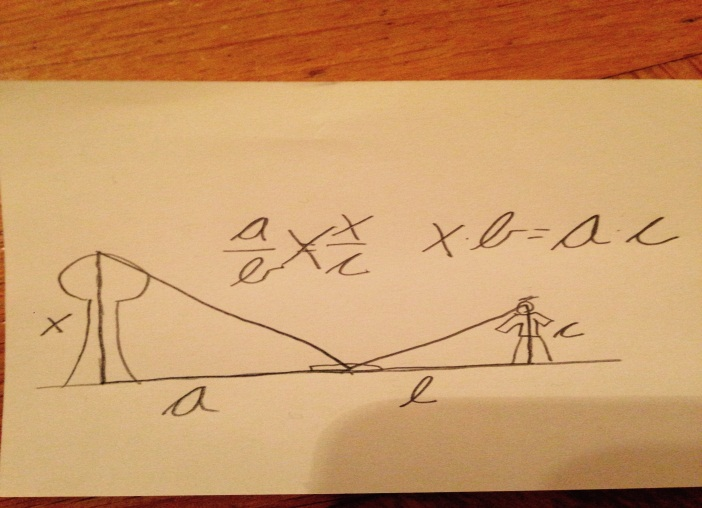 a/b = x/c x·b = a·c
x
c
a
b